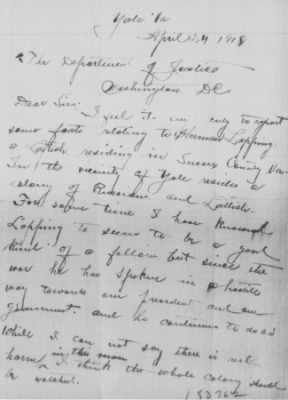 Yale Va
April 24 1918
The Department
of Justice
Washington DC
Dear Sirs:
I feel it my duty to report
some facts relating to Herman Lopping
a Lettish residing in Sussex County Va.
In the vicinity of Yale resides a
colony of Russians and Lettish.
For some time I have known
Lopping to seem to be a good
kind of a fellow but since the
war he has spoken in a hostile
way towards our president and our
government. and he continues to do so
While I can not say there is not
harm in this man I think the whole colony should
be watched.
183762